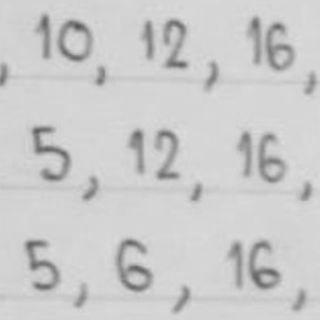 , 10, 12, 16,
5, 12, 16,
5, 6, 16,